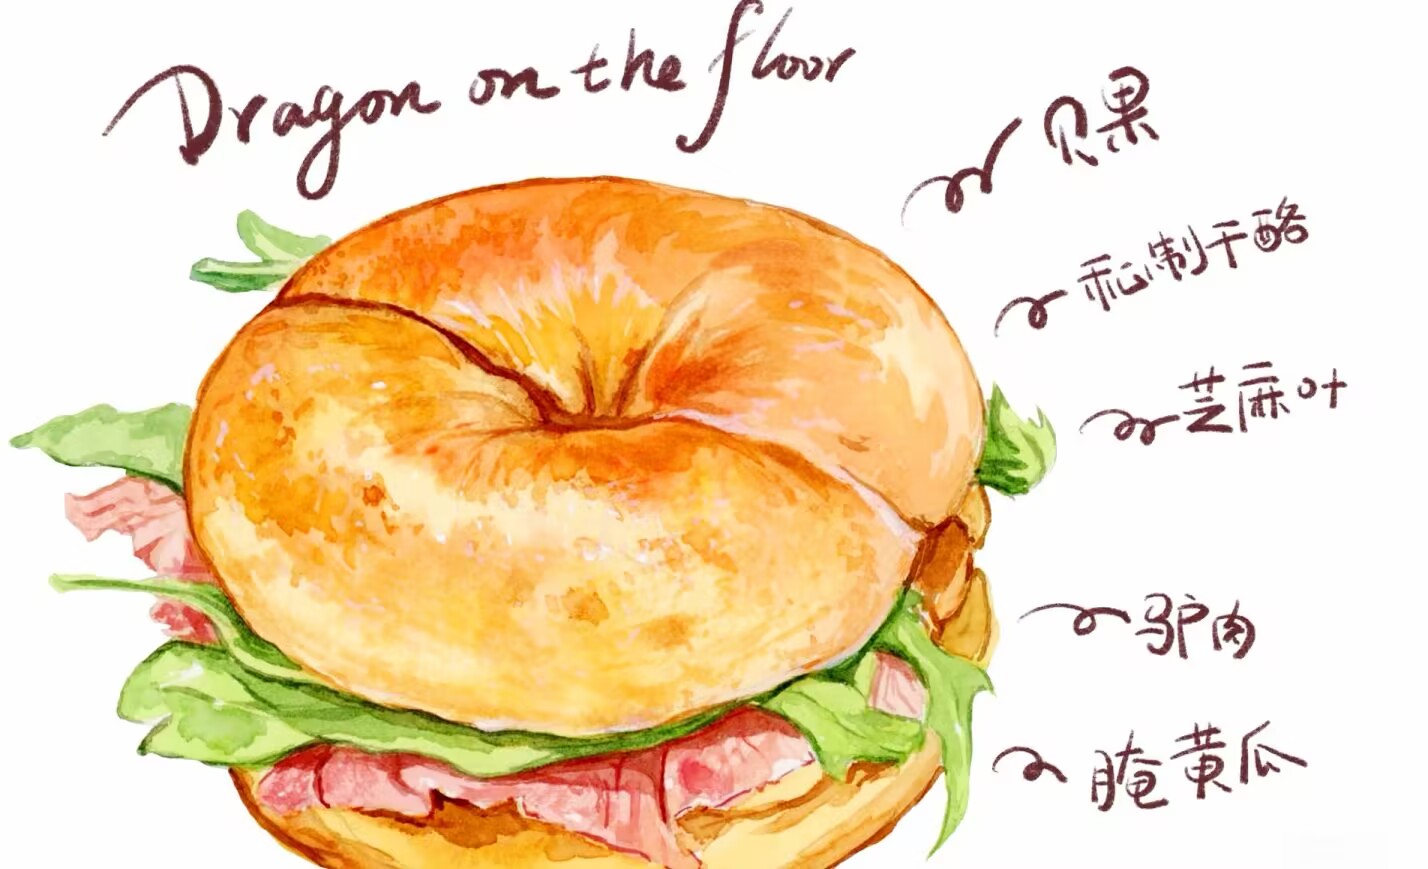 Dragon on the floor
贝果
私制干酪
芝麻叶
驴肉
腌黄瓜